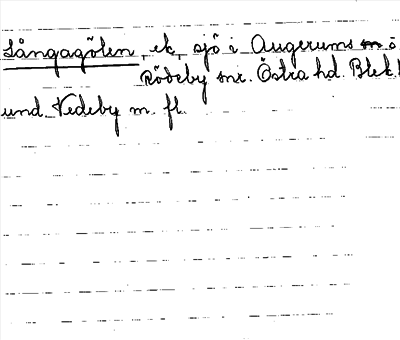 Långagölen, ek, sjö i Augerums o.
Rödeby snr. Östra hd. Blek.
und. Vedeby m. fl.